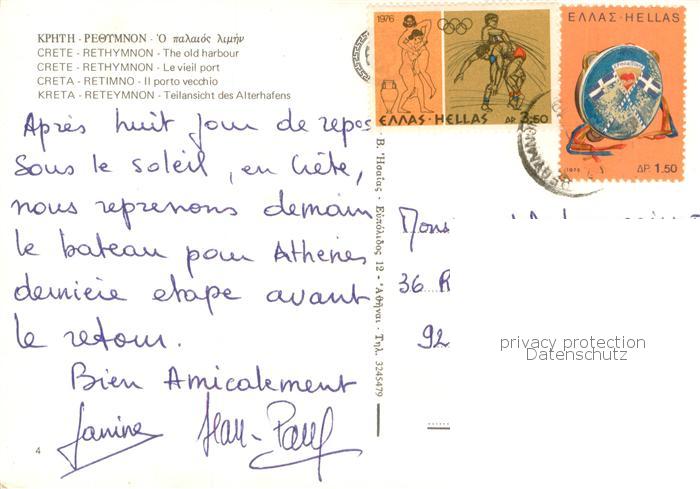 ΚΡΗΤΗ - ΡΕΘΥΜΝΟΝ - Ὁ παλαιός λιμήν
CRETE - RETHYMNON - The old harbour
CRETE - RETHYMNON - Le vieil port
CRETA - RETIMNO - Il porto vecchio
KRETA - RETEYMNON - Teilansicht des Alterhafens
Après huit jour de repos
Sous le soleil, en Crète,
nous reprenons demain
le bateau pour Athènes
dernière etape avant
le retour.
Bien Amicalement
Janine Jean-Paul
4
Β. Ἡσαΐας - Εὐπόλιδος 12 - Ἀθῆναι - Τηλ. 3245479
1976
ΕΛΛΑΣ-HELLAS ΔΡ 3.50
ΕΛΛΑΣ-HELLAS
1975 ΔΡ. 1.50
36 R
92
privacy protection
Datenschutz